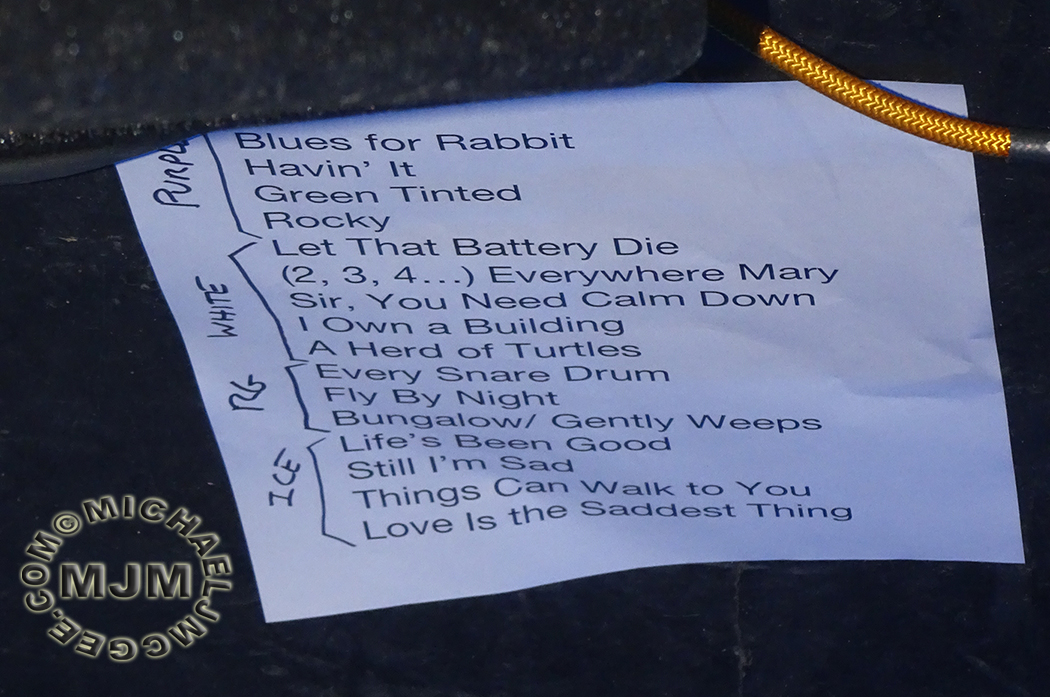 Blues for Rabbit
Havin' It
Green Tinted
Rocky
Let That Battery Die
(2, 3, 4...) Everywhere Mary
Sir, You Need Calm Down
I Own a Building
A Herd of Turtles
Every Snare Drum
Fly By Night
Bungalow/ Gently Weeps
Life's Been Good
Still I'm Sad
Things Can Walk to You
Love Is the Saddest Thing
WHITE
RG
ICE
©MICHAELJMCGEE.COM
MJM